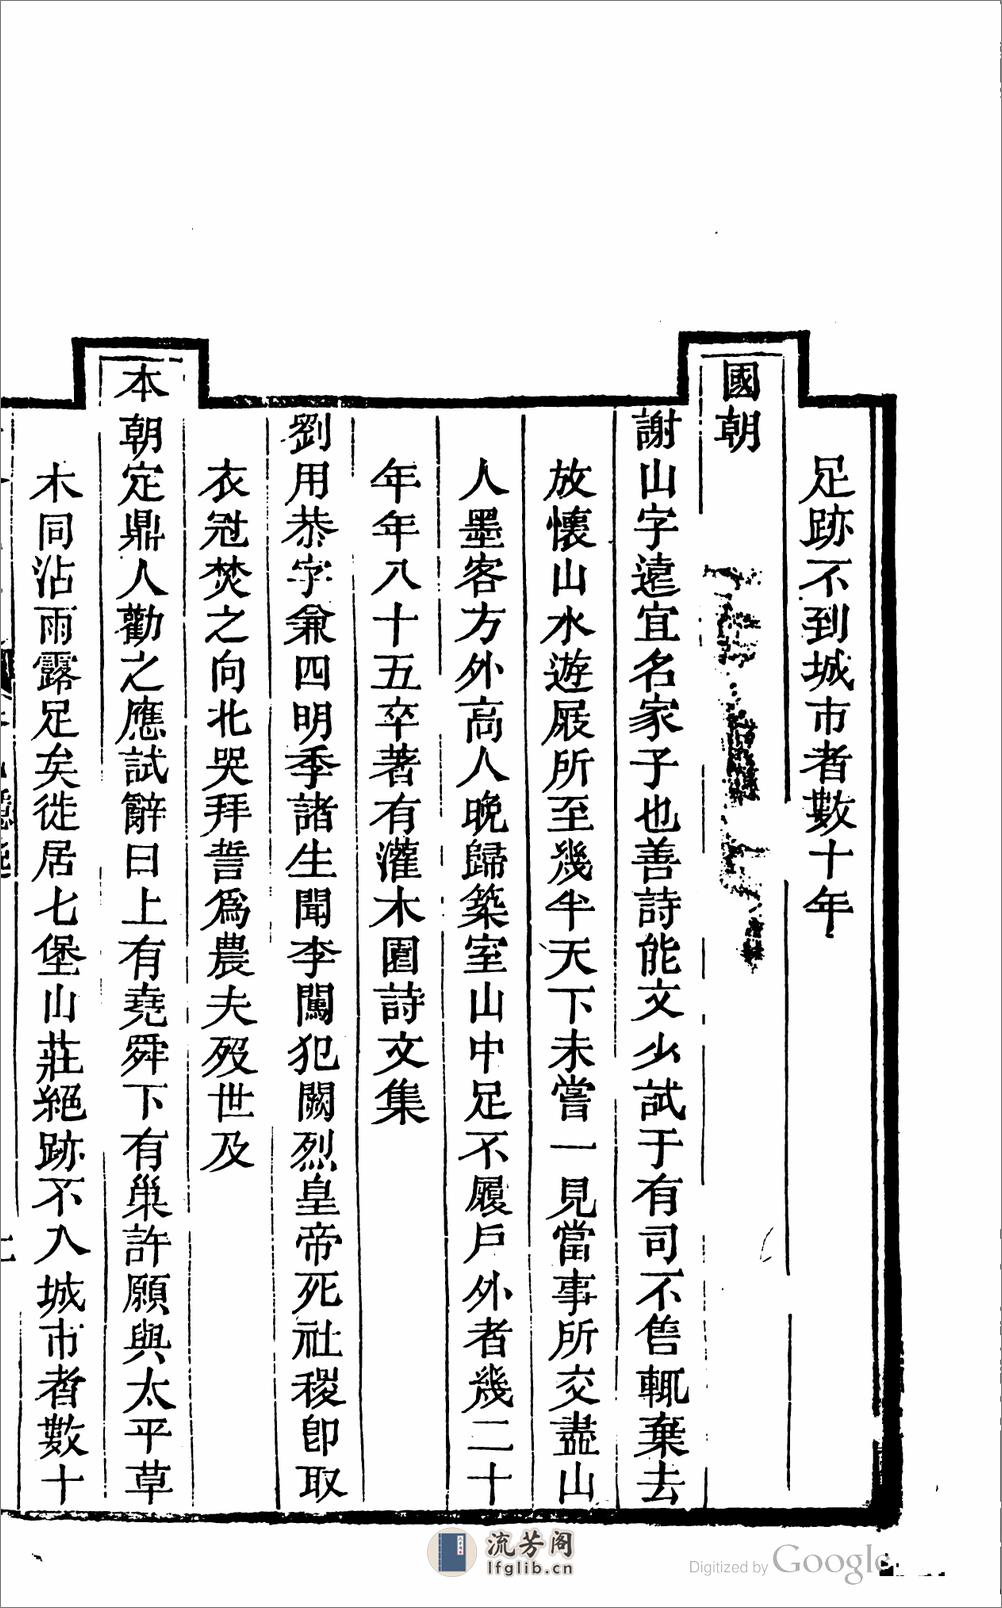 足跡不到城市者數十年
國朝
謝山字遠宜名家子也善詩能文少試于有司不售輒棄去
放懷山水遊屐所至幾半天下未嘗一見當事所交盡山
人墨客方外高人晚歸築室山中足不履戶外者幾二十
年年八十五卒著有灌木園詩文集
劉用恭字兼四明季諸生聞李闖犯闕烈皇帝死社稷卽取
衣冠焚之向北哭拜誓爲農夫歿世及
本朝定鼎人勸之應試辭曰上有堯舜下有巢許願與太平草
木同沾雨露足矣徙居七堡山莊絕跡不入城市者數十
流芳阁
lfglib.cn
Digitized by Google